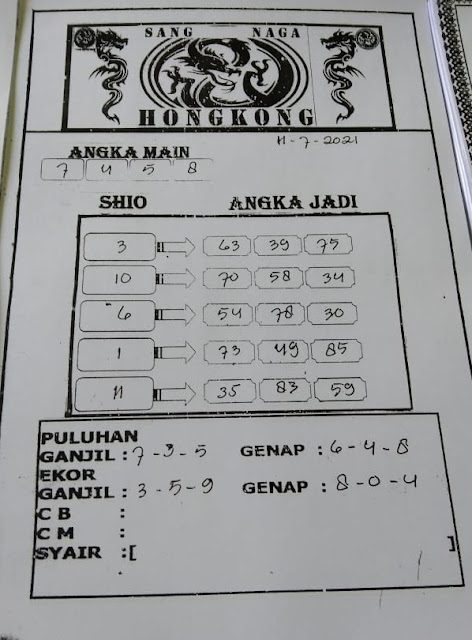 SANG NAGA
HONGKONG
11-7-2021
ANGKA MAIN
7 4 5 8
SHIO ANGKA JADI
3 63 39 75
10 70 58 34
6 54 78 30
1 73 49 85
11 35 83 59
PULUHAN
GANJIL : 7-3-5 GENAP : 6-4-8
EKOR
GANJIL : 3-5-9 GENAP : 8-0-4
C B :
C M :
SYAIR :[ ]